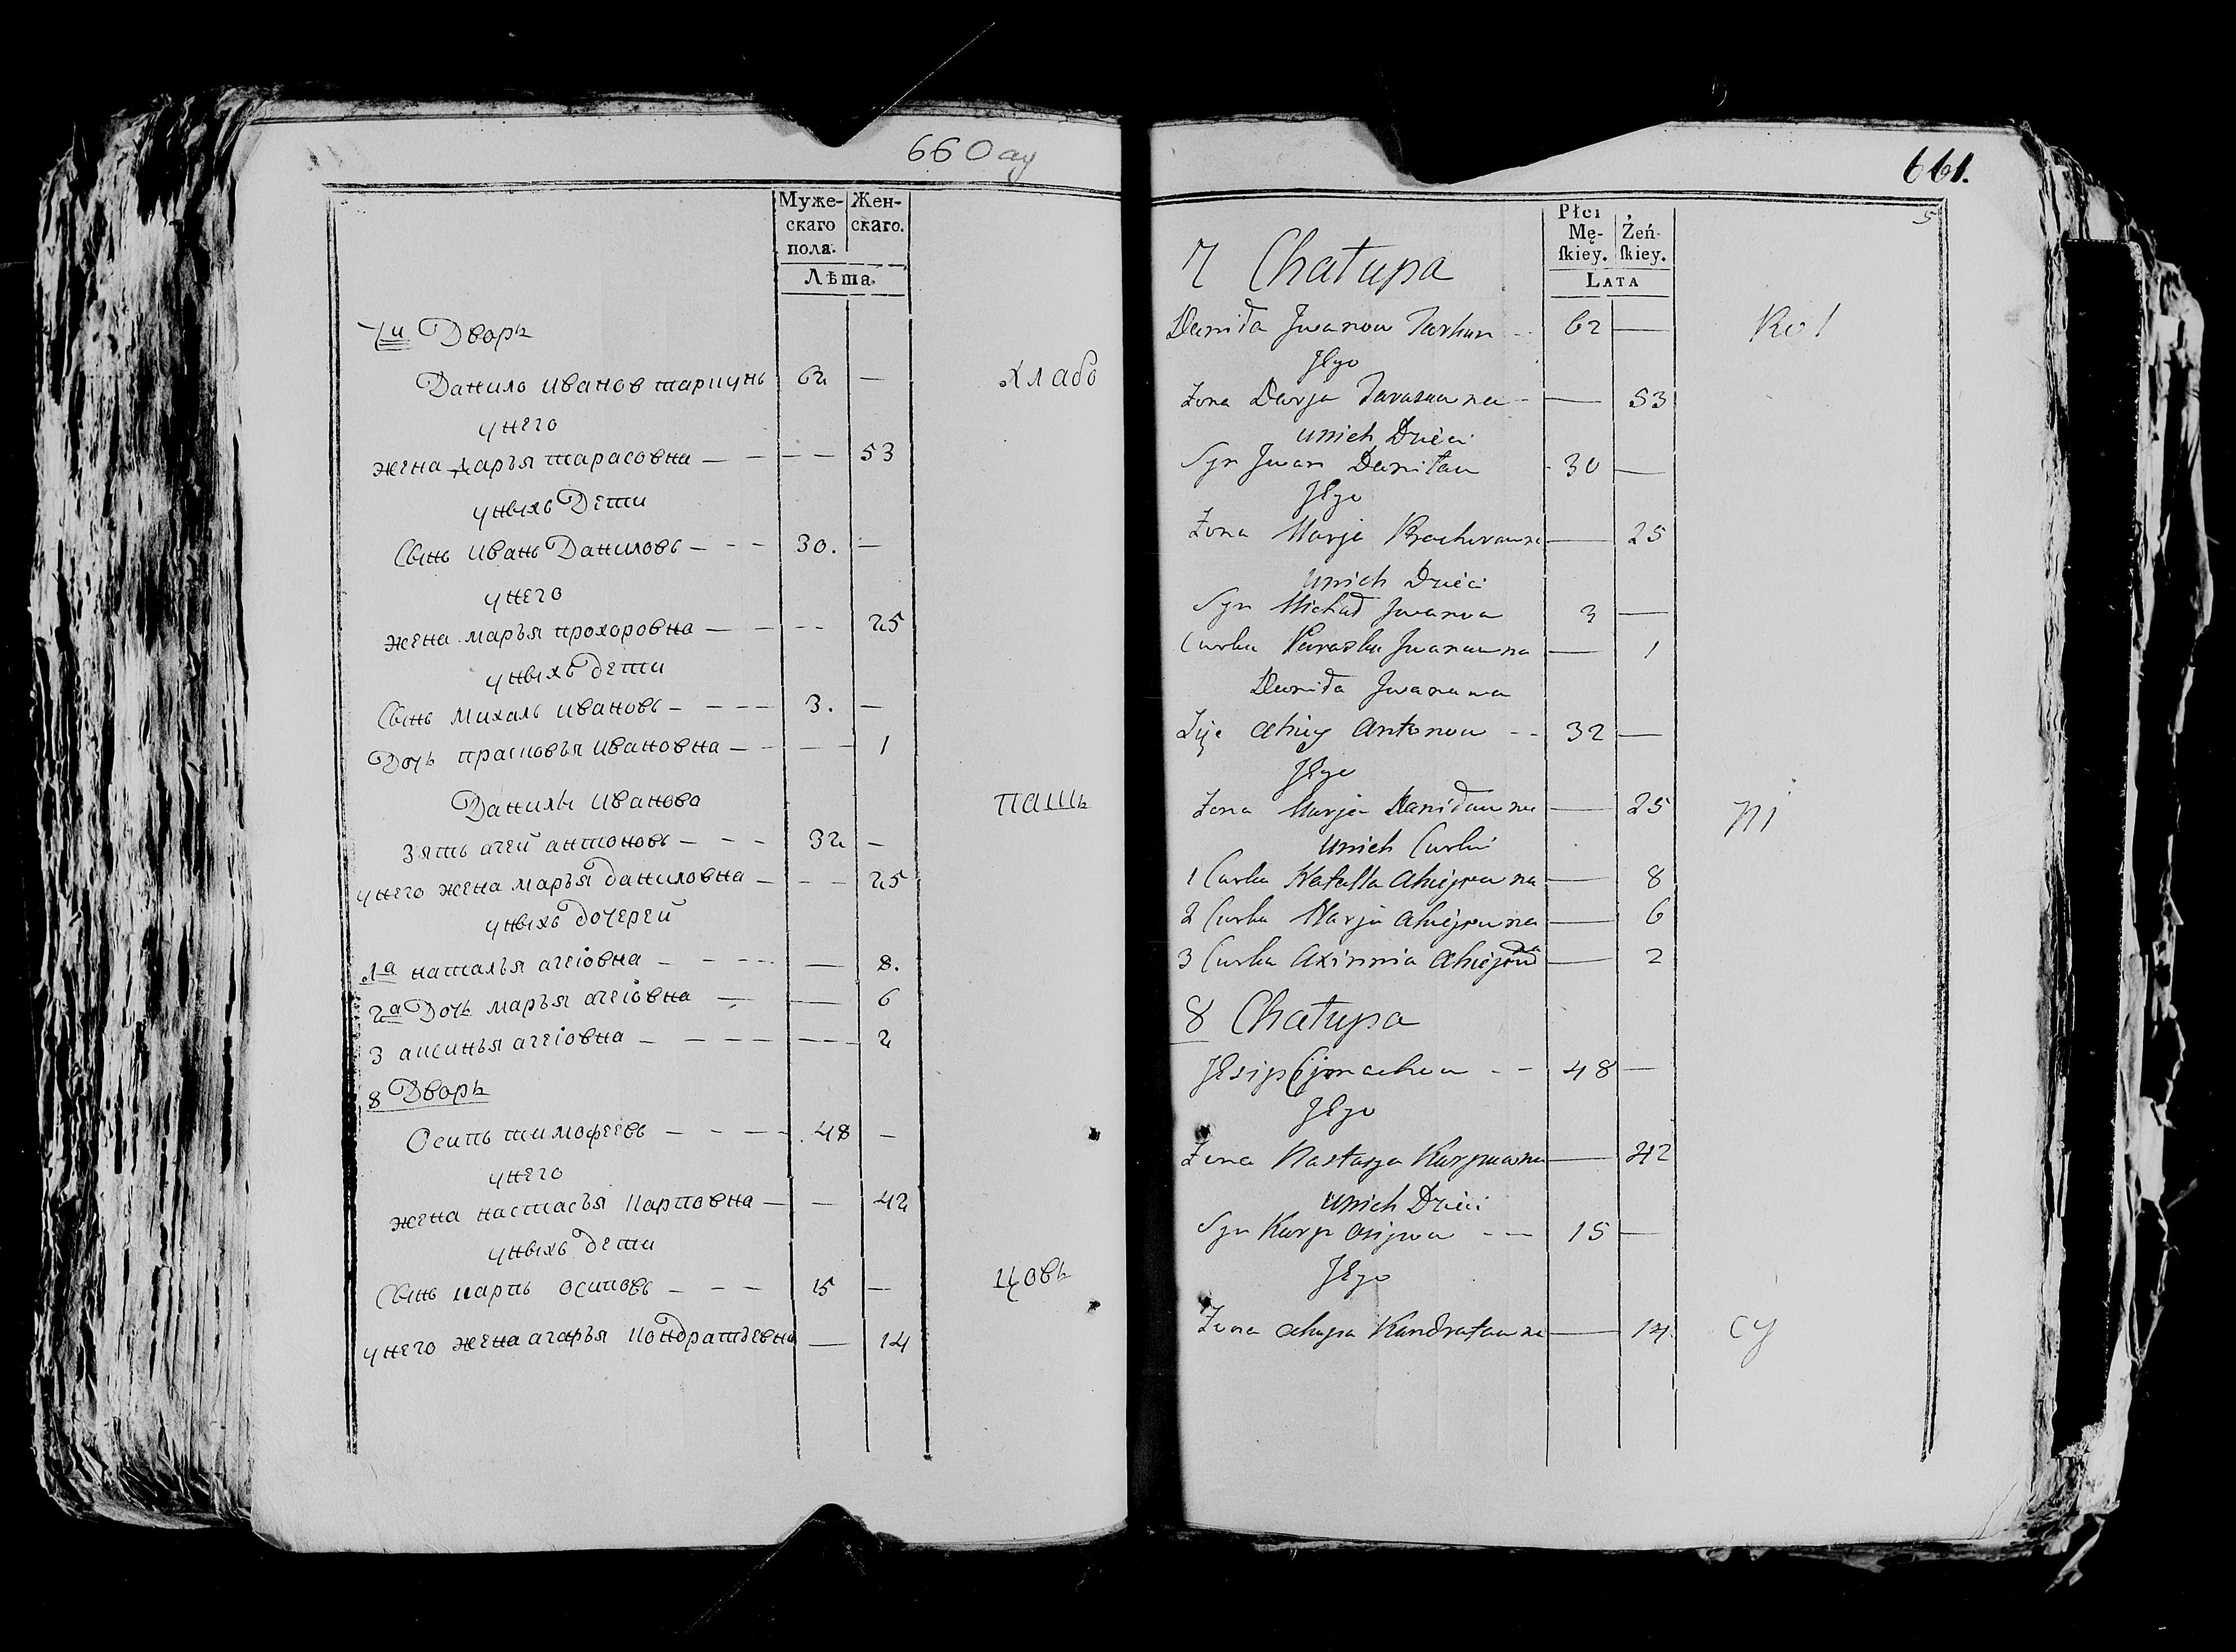 660 ау
Муже-
скаго
пола.
Жен-
скаго.
Лѣта.
7й Дворъ
Данило иванов таркунъ 62 —
хлабо
унего
жена дарья тарасовна — — — — 53
унихъ Дети
Сынъ иванъ Даниловъ — — — 30. —
унего
жена марья прохоровна — — — — 25
унихъ дети
Сынъ михалъ ивановъ — — — — 3. —
Дочь прасковья ивановна — — — — 1
Данилы иванова
пашъ
зять агей антоновъ — — — 32 —
унего жена марья даниловна — — — 25
унихъ дочерей
1а наталья агеіовна — — — — — 8.
2а Дочь марья агеіовна — — 6
3 аксинья агеіовна — — — — — — — 2
8 Дворъ
Осипъ тимофеевъ — — — — 48 —
унего
жена настасья карповна — — 42
унихъ дети
Сынъ карпъ осиповъ — — — 15 —
цовъ
унего жена агарья кондратьевна — 14
661.
5
Płci
Mę-
skiey.
Żeń-
skiey.
LATA
7 Chałupa
Daniła Jwanow Tarkun -- 62 —
Kol
Jego
Zona Darja Tarasowna - — 53
unich Dzieci
Syn Jwan Daniłow - 30 —
Jego
Zona Marja Prochorowna — 25
unich Dzieci
Syn Michał Jwanow 3 —
Curka Paraska Jwanowna — 1
Daniła Jwanowa
Zięc Ahiey Antonow -- 32 —
Jego
Zona Marja Daniłowna — 25
ni
unich Curki
1 Curka Natalla Ahiejowna — 8
2 Curka Marja Ahiejowna — 6
3 Curka Axinnia Ahiejowna — 2
8 Chałupa
Jesip Cimachow -- 48 —
Jego
Zona Nastazja Karpowna — 42
unich Dzieci
Syn Karp Osipow --- 15 —
Jego
Zona Ahapa Kondratowna — 14
cy